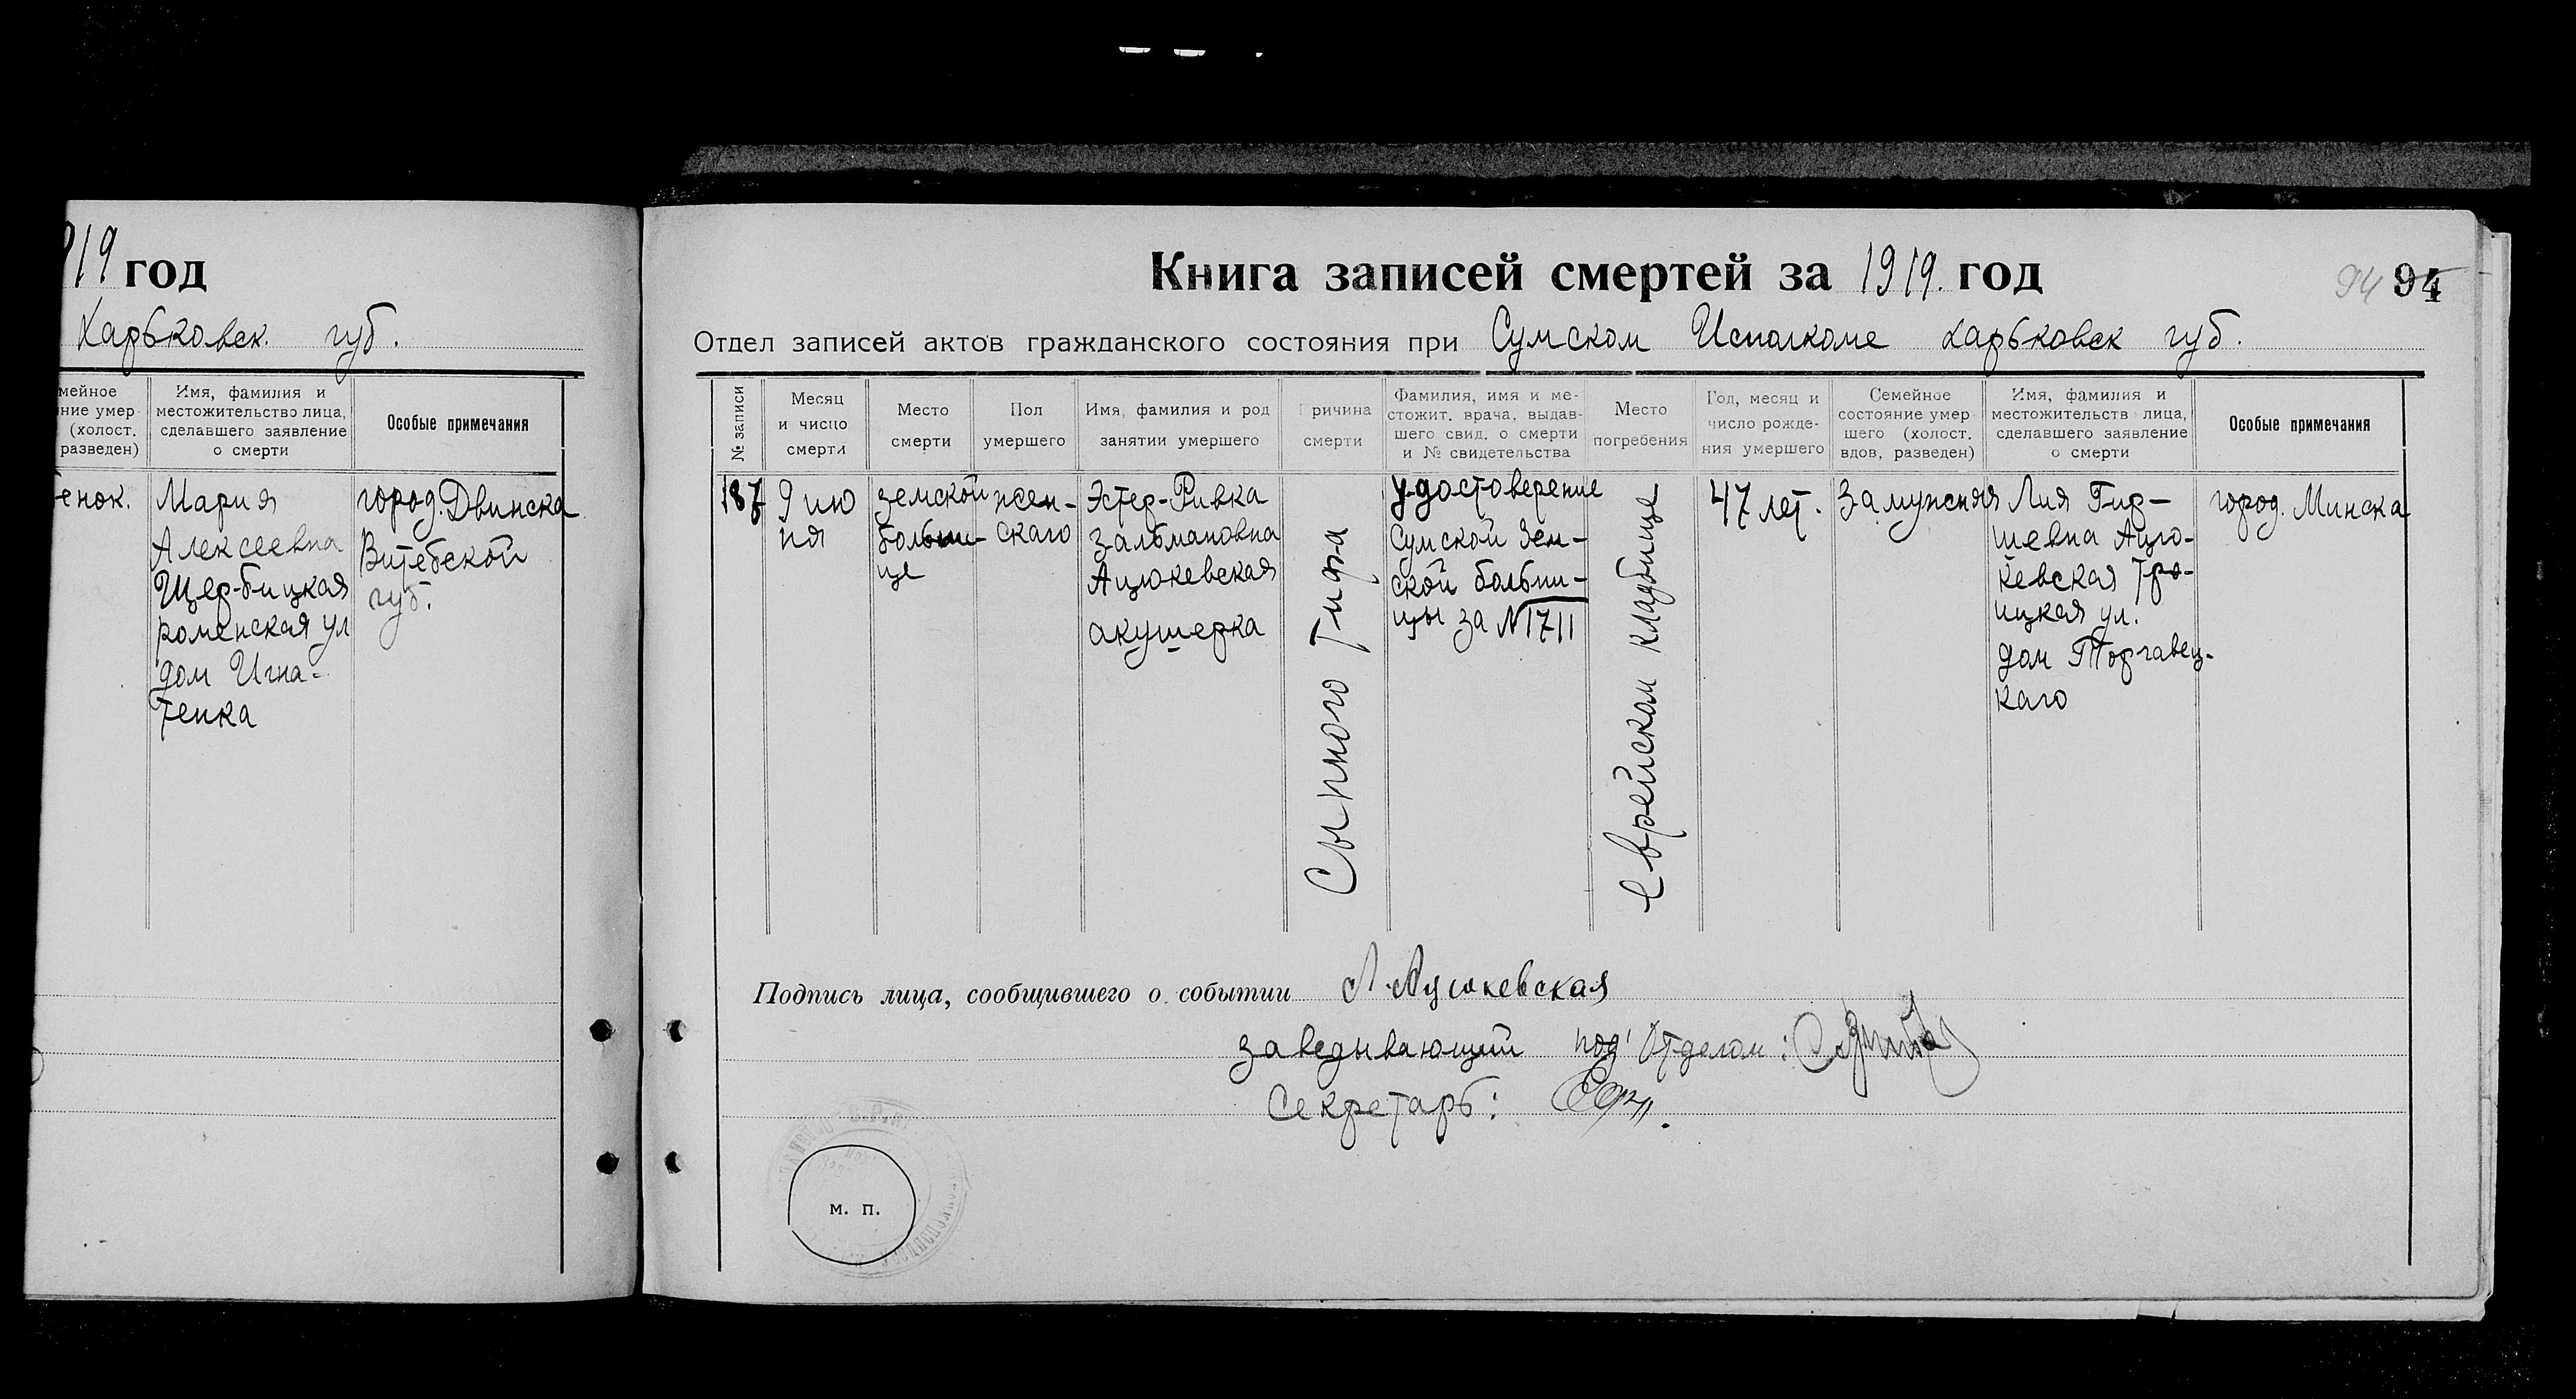 919 год
Харьковск. губ.
мейное
ние умер
(холост.
разведен)
Имя, фамилия и
местожительство лица,
сделавшего заявление
о смерти
Особые примечания
енок.
Мария
Алексеевна
Щербицкая
роменская ул
дом Игна-
тенка
город. Двинска
Витебской
губ.
Книга записей смертей за 1919. год
94 94
Отдел записей актов гражданского состояния при Сумском Исполкоме Харьковск губ.
№ записи
Месяц
и число
смерти
Место
смерти
Пол
умершего
Имя, фамилия и род
занятии умершего
Причина
смерти
Фамилия, имя и ме-
стожит. врача, выдав-
шего свид. о смерти
и № свидетельства
Место
погребения
Год, месяц и
число рожде-
ния умершего
Семейное
состояние умер
шего (холост.
вдов, разведен)
Имя, фамилия и
местожительств лица,
сделавшего заявление
о смерти
Особые примечания
187
9 ию
ня
земской
больни-
це
жен-
скаго
Эстер-Ривка
Залмановна
Ацюкевская
акушерка
Сыпного Тифа
Удостоверение
Сумской Зем-
ской больни-
цы за №1711
Еврейском кладбище
47 лет.
Замужняя
Лия Гир-
шевна Ацю-
кевская Тро-
ицкая ул.
дом Торгавец-
каго
город. Минска
Подпись лица, сообщившего о событии Л. Ацюкевская
Заведывающий под'Отделом:
Секретарь:
м. п.